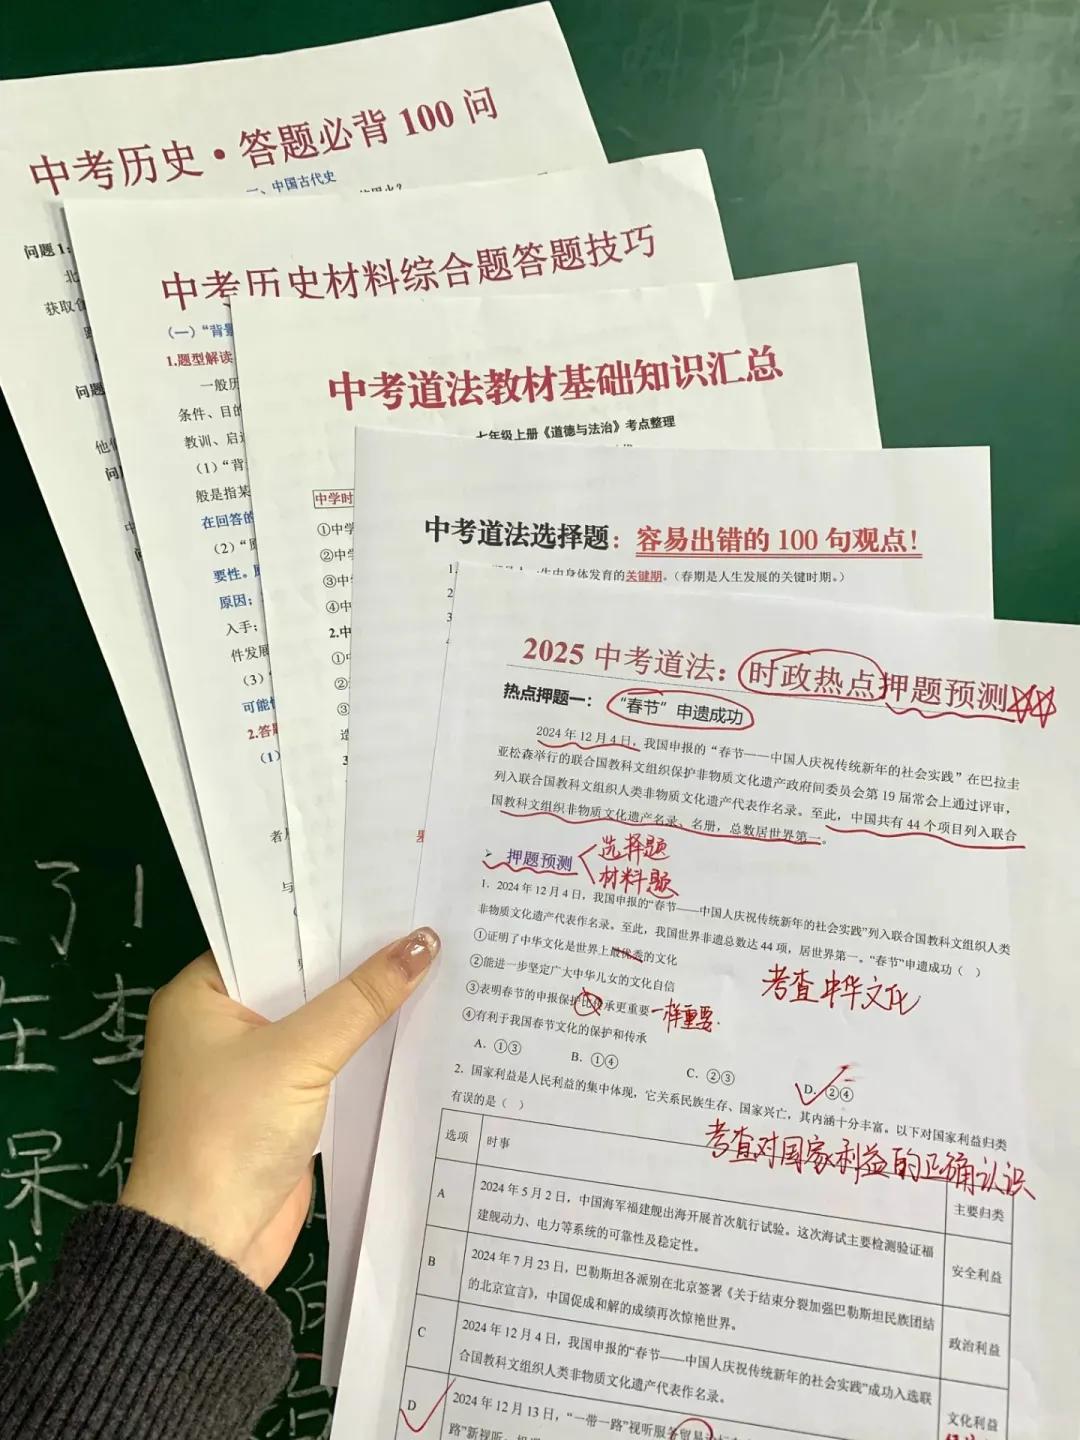 中考历史·答题必背 100 问
一、中国古代史
问题 1:
北
获取食
问题
他们
中考历史材料综合题答题技巧
(一)“背景
1.题型解读
一般历
条件、目的
教训、启
(1)“背
般是指某
在回答的
(2)“原
要性。
原因;
入手;
件发展
(3)“
可能
2.答题
(1)
者
与
中考道法教材基础知识汇总
七年级上册《道德与法治》考点整理
中学时
①中学
②中学
③中
④中
2.中
①中
②
③
造
3
中考道法选择题:容易出错的 100 句观点!
1.
生中身体发育的关键期。(春期是人生发展的关键时期。)
2
3
2025 中考道法:时政热点押题预测
热点押题一:“春节”申遗成功
2024 年 12 月 4 日,我国申报的“春节——中国人庆祝传统新年的社会实践”在巴拉圭
亚松森举行的联合国教科文组织保护非物质文化遗产政府间委员会第 19 届常会上通过评审,
列入联合国教科文组织人类非物质文化遗产代表作名录。至此,中国共有 44 个项目列入联合
国教科文组织非物质文化遗产名录、名册,总数居世界第一。
押题预测
选择题
材料题
1. 2024 年 12 月 4 日,我国申报的“春节——中国人庆祝传统新年的社会实践”列入联合国教科文组织人类
非物质文化遗产代表作名录。至此,我国世界非遗总数达 44 项,居世界第一。“春节”申遗成功( )
①证明了中华文化是世界上最优秀的文化
②能进一步坚定广大中华儿女的文化自信
考查中华文化
③表明春节的申报保护比传承更重要 一样重要.
④有利于我国春节文化的保护和传承
A. ①③ B. ①④ C. ②③ D. ②④
2. 国家利益是人民利益的集中体现,它关系民族生存、国家兴亡,其内涵十分丰富。以下对国家利益归类
有误的是( )
考查对国家利益的正确认识
选项 时事 主要归类
A 2024 年 5 月 2 日,中国海军福建舰出海开展首次航行试验。这次海试主要检测验证福
建舰动力、电力等系统的可靠性及稳定性。 安全利益
B 2024 年 7 月 23 日,巴勒斯坦各派别在北京签署《关于结束分裂加强巴勒斯坦民族团结
的北京宣言》,中国促成和解的成绩再次惊艳世界。 政治利益
C 2024 年 12 月 4 日,我国申报的“春节——中国人庆祝传统新年的社会实践”成功入选联
合国教科文组织人类非物质文化遗产代表作名录。 文化利益
D 2024 年 12 月 13 日,“一带一路”视听服务贸易
路”新视听
了!
李
呆